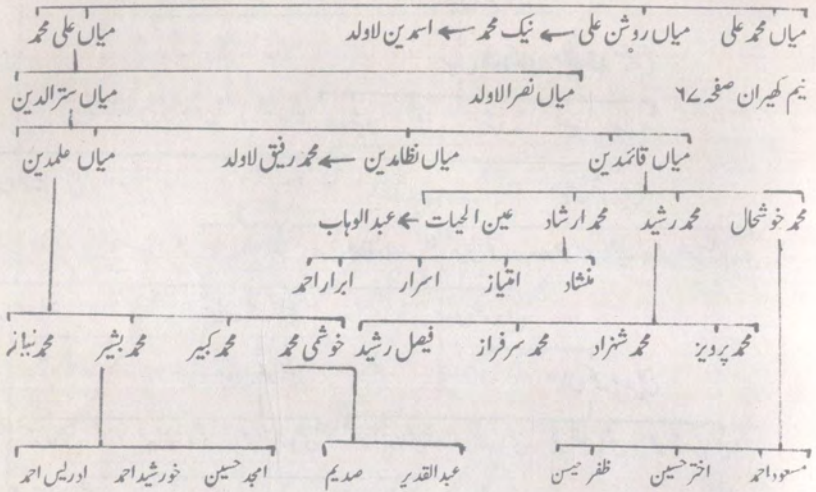 میاں محمد علی میاں روشن علی ← نیک محمد ← اسمدین لاولد میاں علی محمد
نیم کھیران صفحہ ۶۷ میاں نصر الاولد میاں ستر الدین
میاں قائمدین میاں نظامدین ← محمد رفیق لاولد میاں علمدین
محمد خوشحال محمد رشید محمد ارشاد عین الحیات ← عبدالوہاب
منشاد امتیاز اسرار ابرار احمد
محمد پرویز محمد شہزاد محمد سرفراز فیصل رشید خوشمی محمد محمد کبیر محمد بشیر محمد نیاز
مسعود احمد اختر حسین ظفر حسن عبدالقدیر صدیم امجد حسین خورشید احمد ادریس احمد